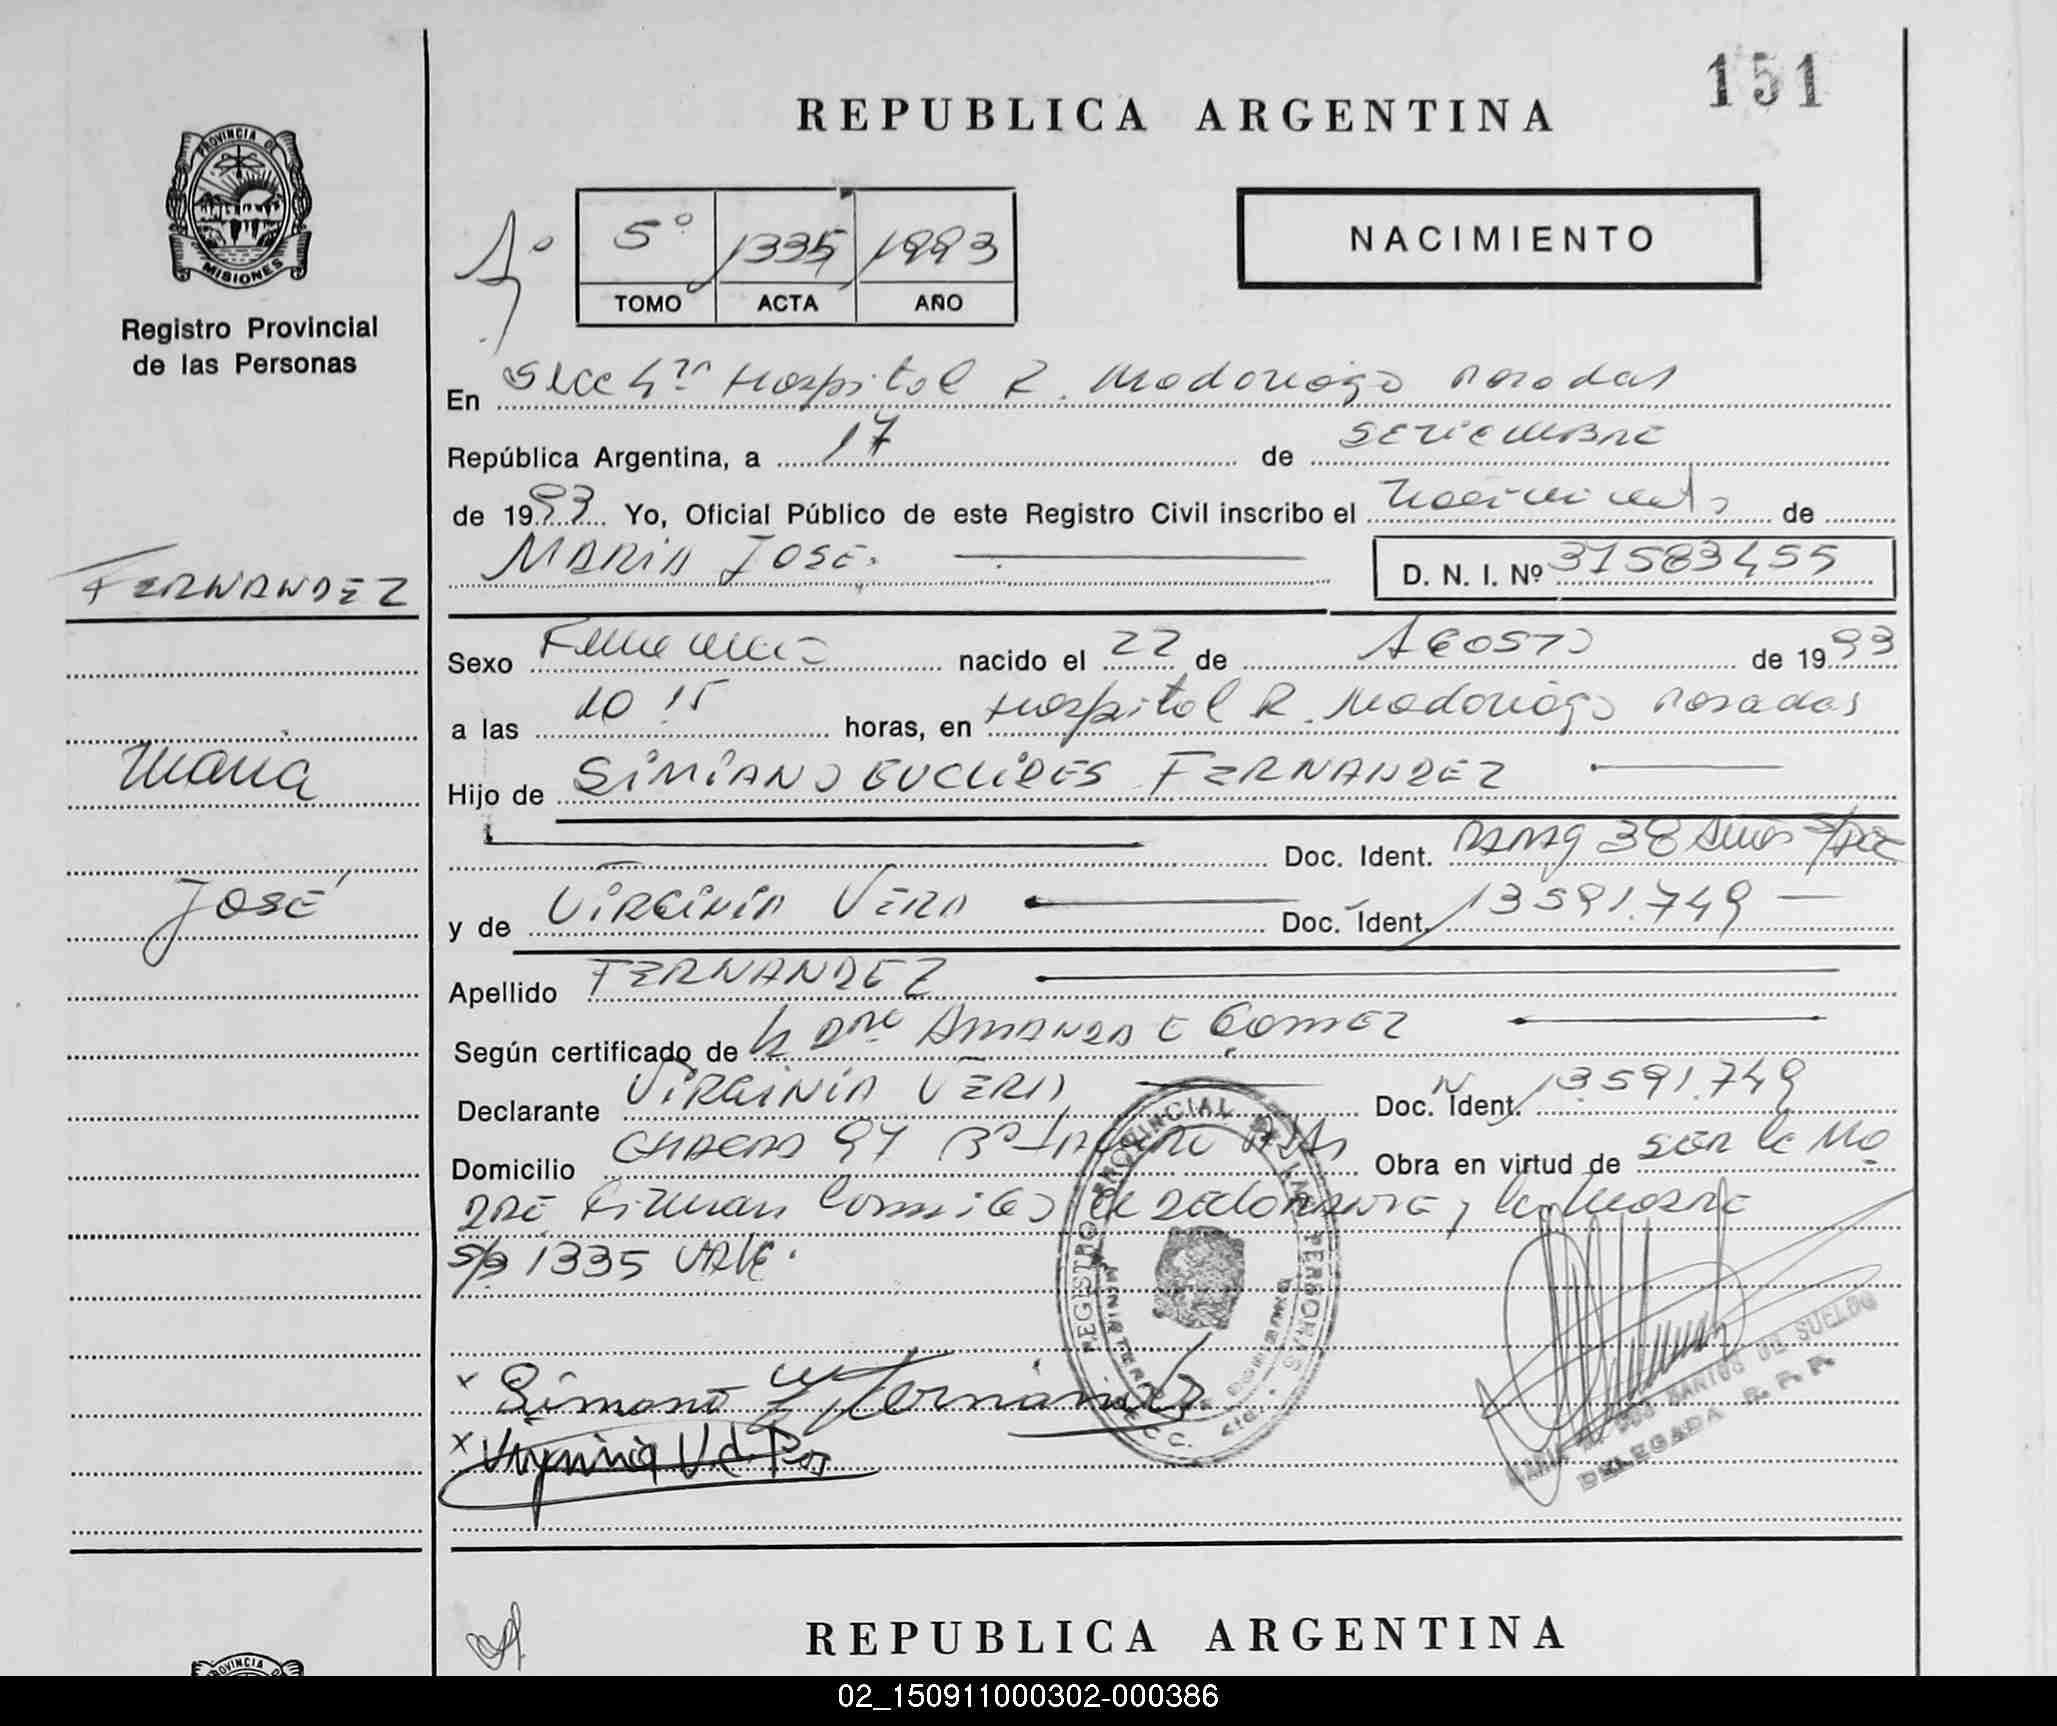 151
REPUBLICA ARGENTINA
PROVINCIA DE
MISIONES
Registro Provincial
de las Personas
5º 1335 1993
TOMO ACTA AÑO
NACIMIENTO
En Secc 4ta Hospital R. Madariaga Posadas
República Argentina, a 17 de SETIEMBRE
de 1993 Yo, Oficial Público de este Registro Civil inscribo el Nacimiento de
MARIA JOSE.
D. N. I. Nº 37583455
FERNANDEZ
Maria
José
Sexo Femenino nacido el 22 de AGOSTO de 1993
a las 10 15 horas, en Hospital R. Madariaga Posadas
Hijo de SIMIANO EUCLIDES FERNANDEZ
Doc. Ident. 38 Años
y de VIRGINIA VERA Doc. Ident. 13591.749
Apellido FERNANDEZ
Según certificado de AMANDA E GOMEZ
Declarante VIRGINIA VERA Doc. Ident. 13.591.749
Domicilio CHACRA 97 Obra en virtud de SER la MA
DRE Firman
1335 VALE.
REGISTRO PROVINCIAL DE LAS PERSONAS
MINISTERIO DE GOBIERNO
DOS SANTOS DE SUELDO
DELEGADA R. P. P.
REPUBLICA ARGENTINA
PROVINCIA
02_150911000302-000386